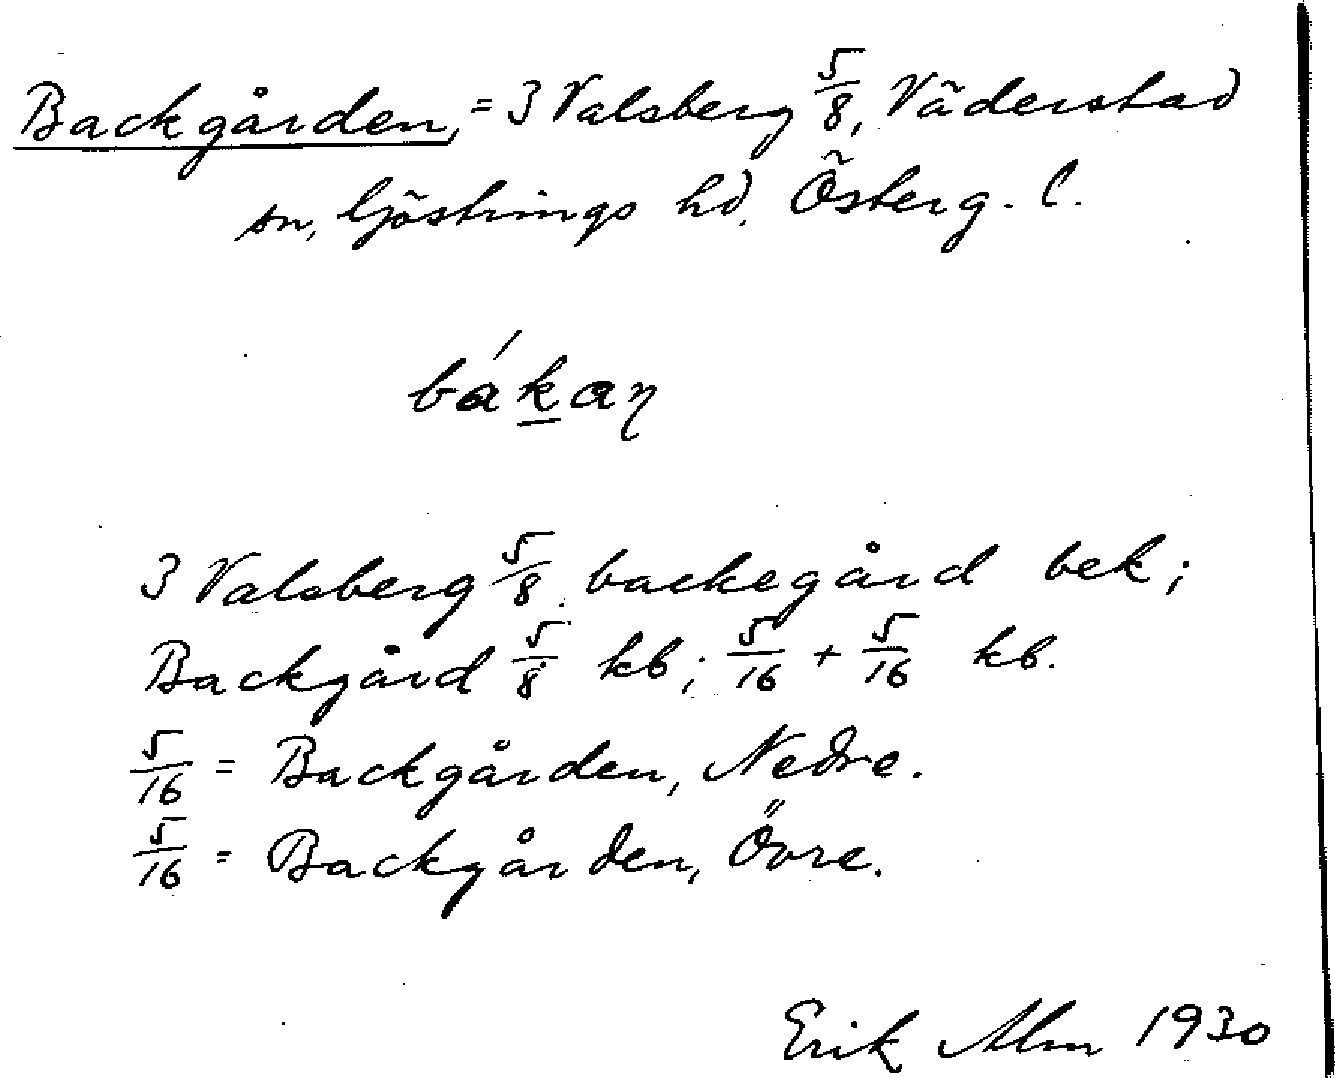 Backgården, = 3 Valsberg 5/8, Väderstad
sn, Göstrings hd. Österg. l.
bákaŋ
3 Valsberg 5/8 backegård bek;
Backgård 5/8 kb; 5/16 + 5/16 kb.
5/16 = Backgården, Nedre.
5/16 = Backgården, Övre.
Erik Alm 1930